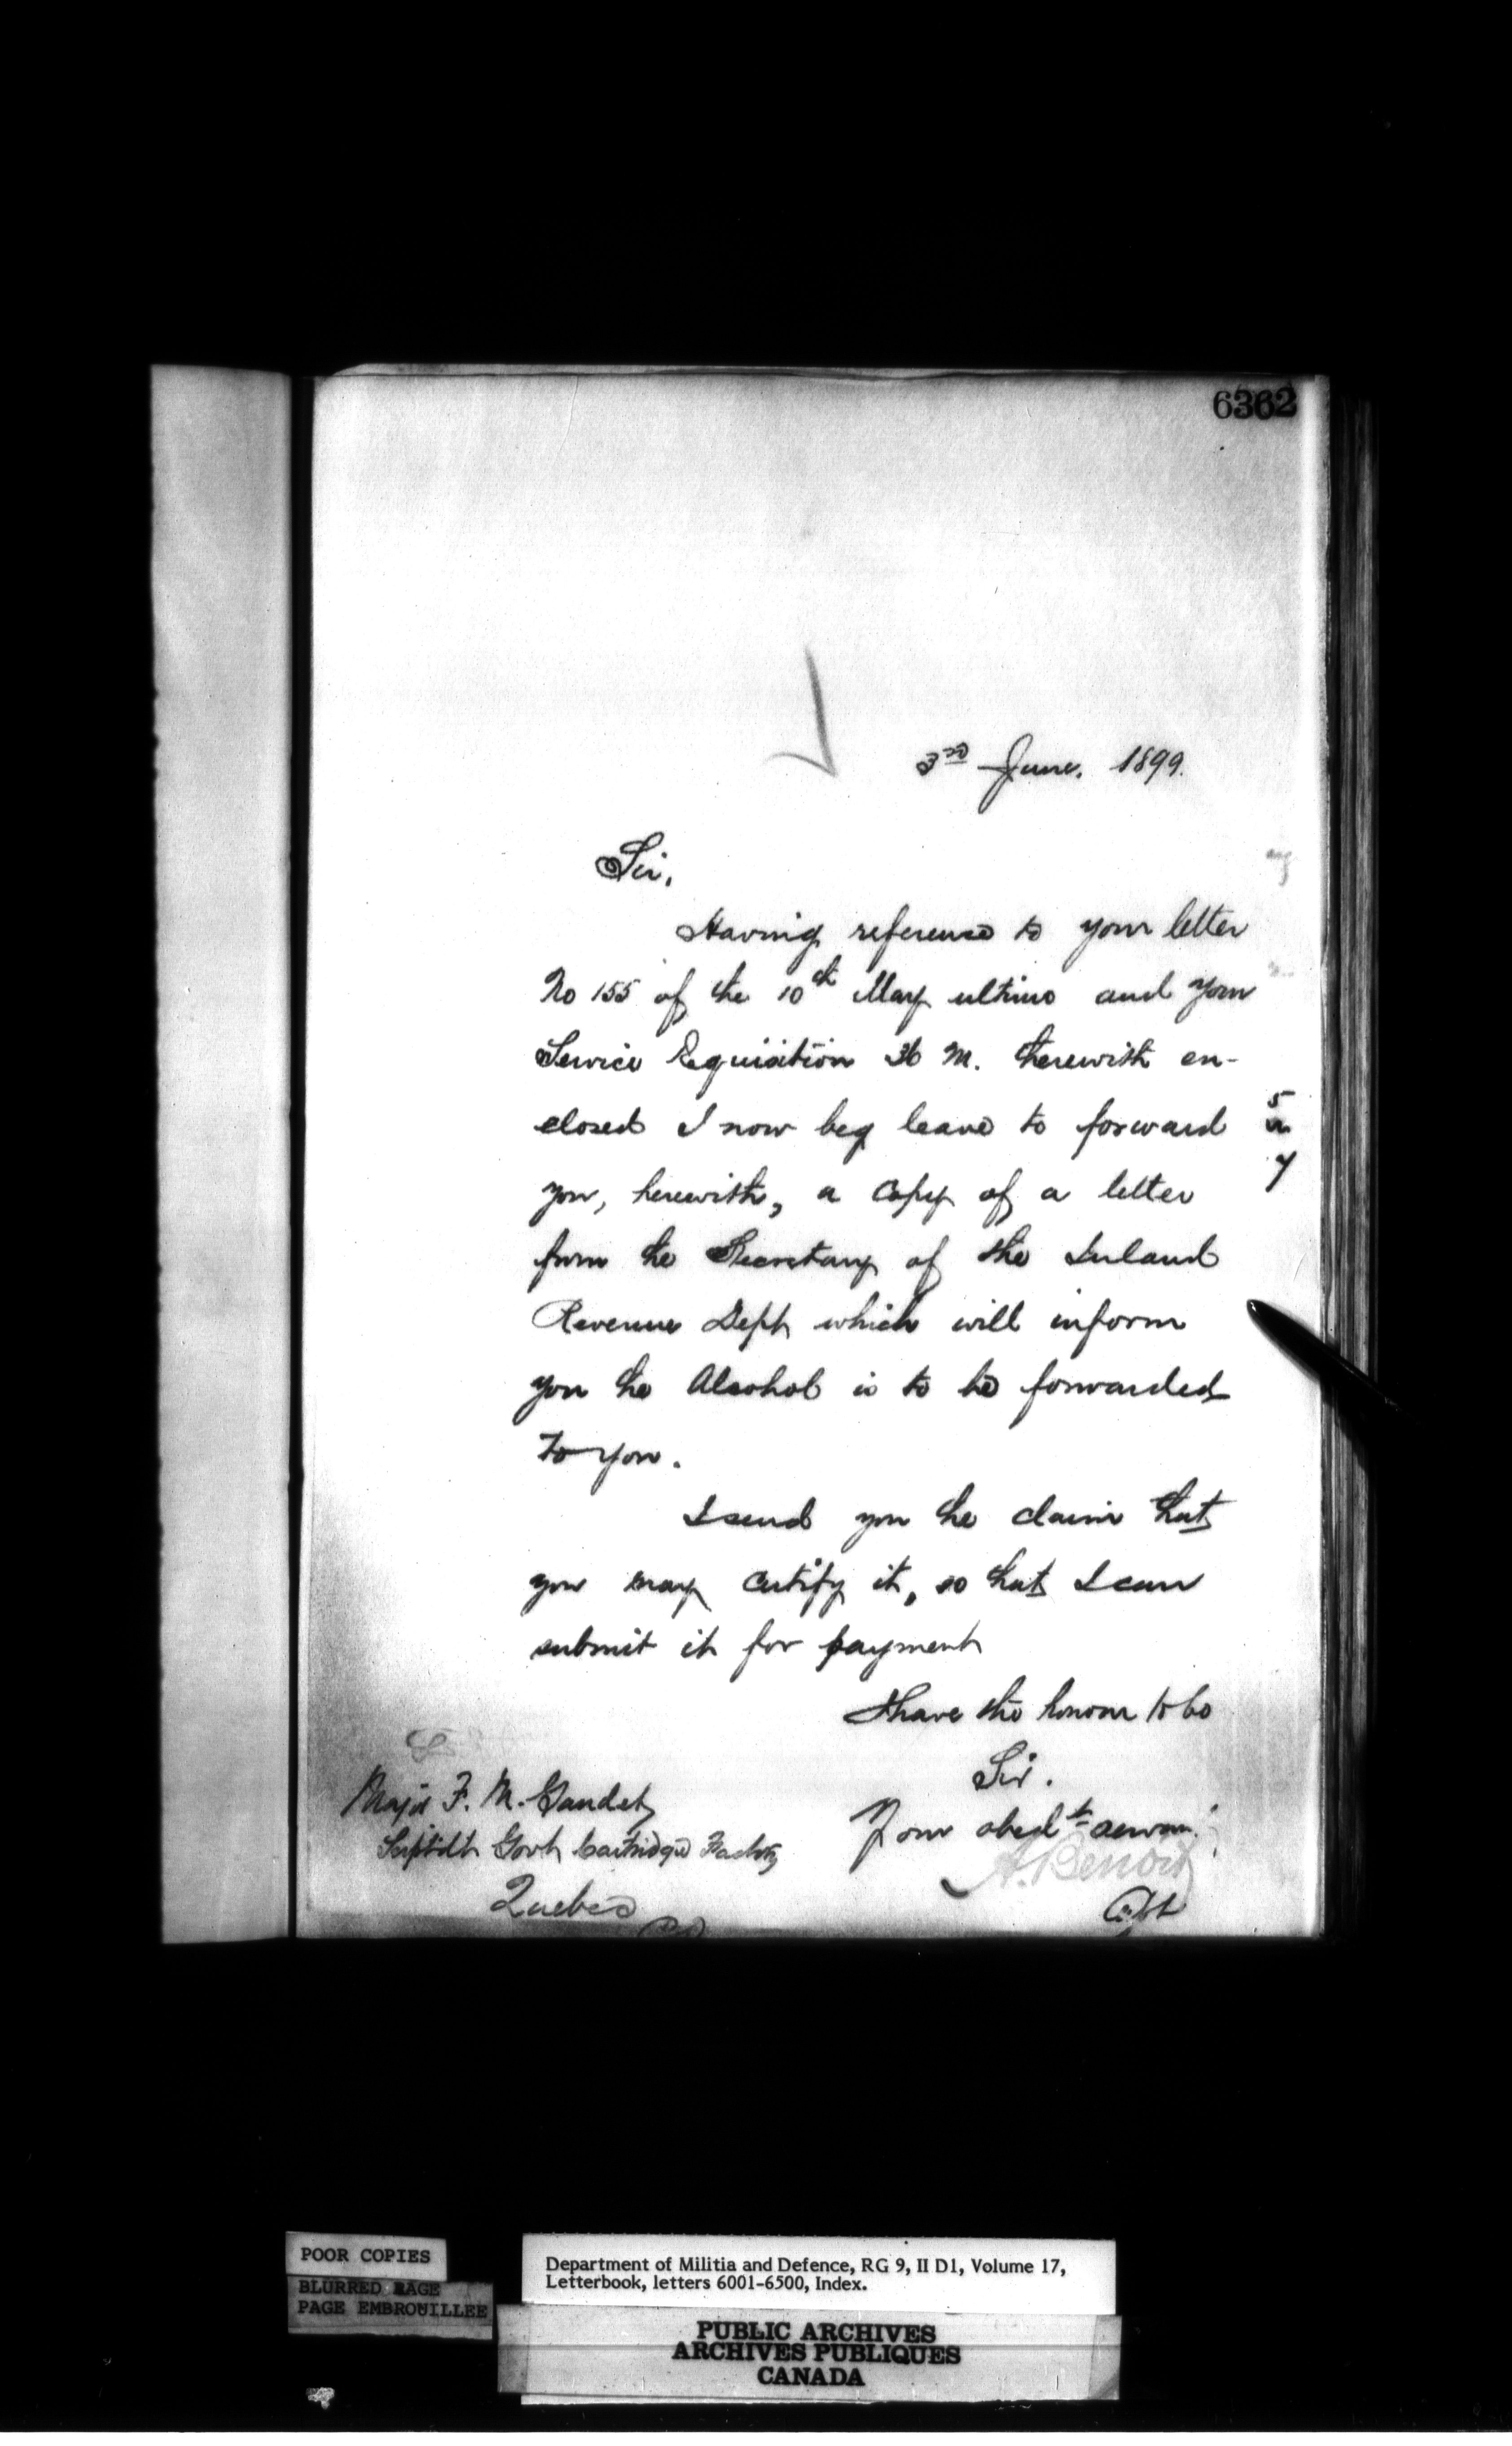 6362
3rd June. 1899.
Sir,
Having reference to your letter
No 155 of the 10th May ultimo and your
Service Requisition 36 M. herewith en-
closed I now beg leave to forward
you, herewith, a copy of a letter
from the Secretary of the Inland
Revenue Dept which will inform
you the Alcohol is to be forwarded
to you.
I send you the claim that
you may certify it, so that I can
submit it for payment
I have the honour to be
Sir.
Your obedt servant
A. Benoit
Major F. M. Gaudet
Suptdt Govt Cartridge Factory
Quebec
POOR COPIES
BLURRED PAGE
PAGE EMBROUILLEE
Department of Militia and Defence, RG 9, II D1, Volume 17,
Letterbook, letters 6001-6500, Index.
PUBLIC ARCHIVES
ARCHIVES PUBLIQUES
CANADA